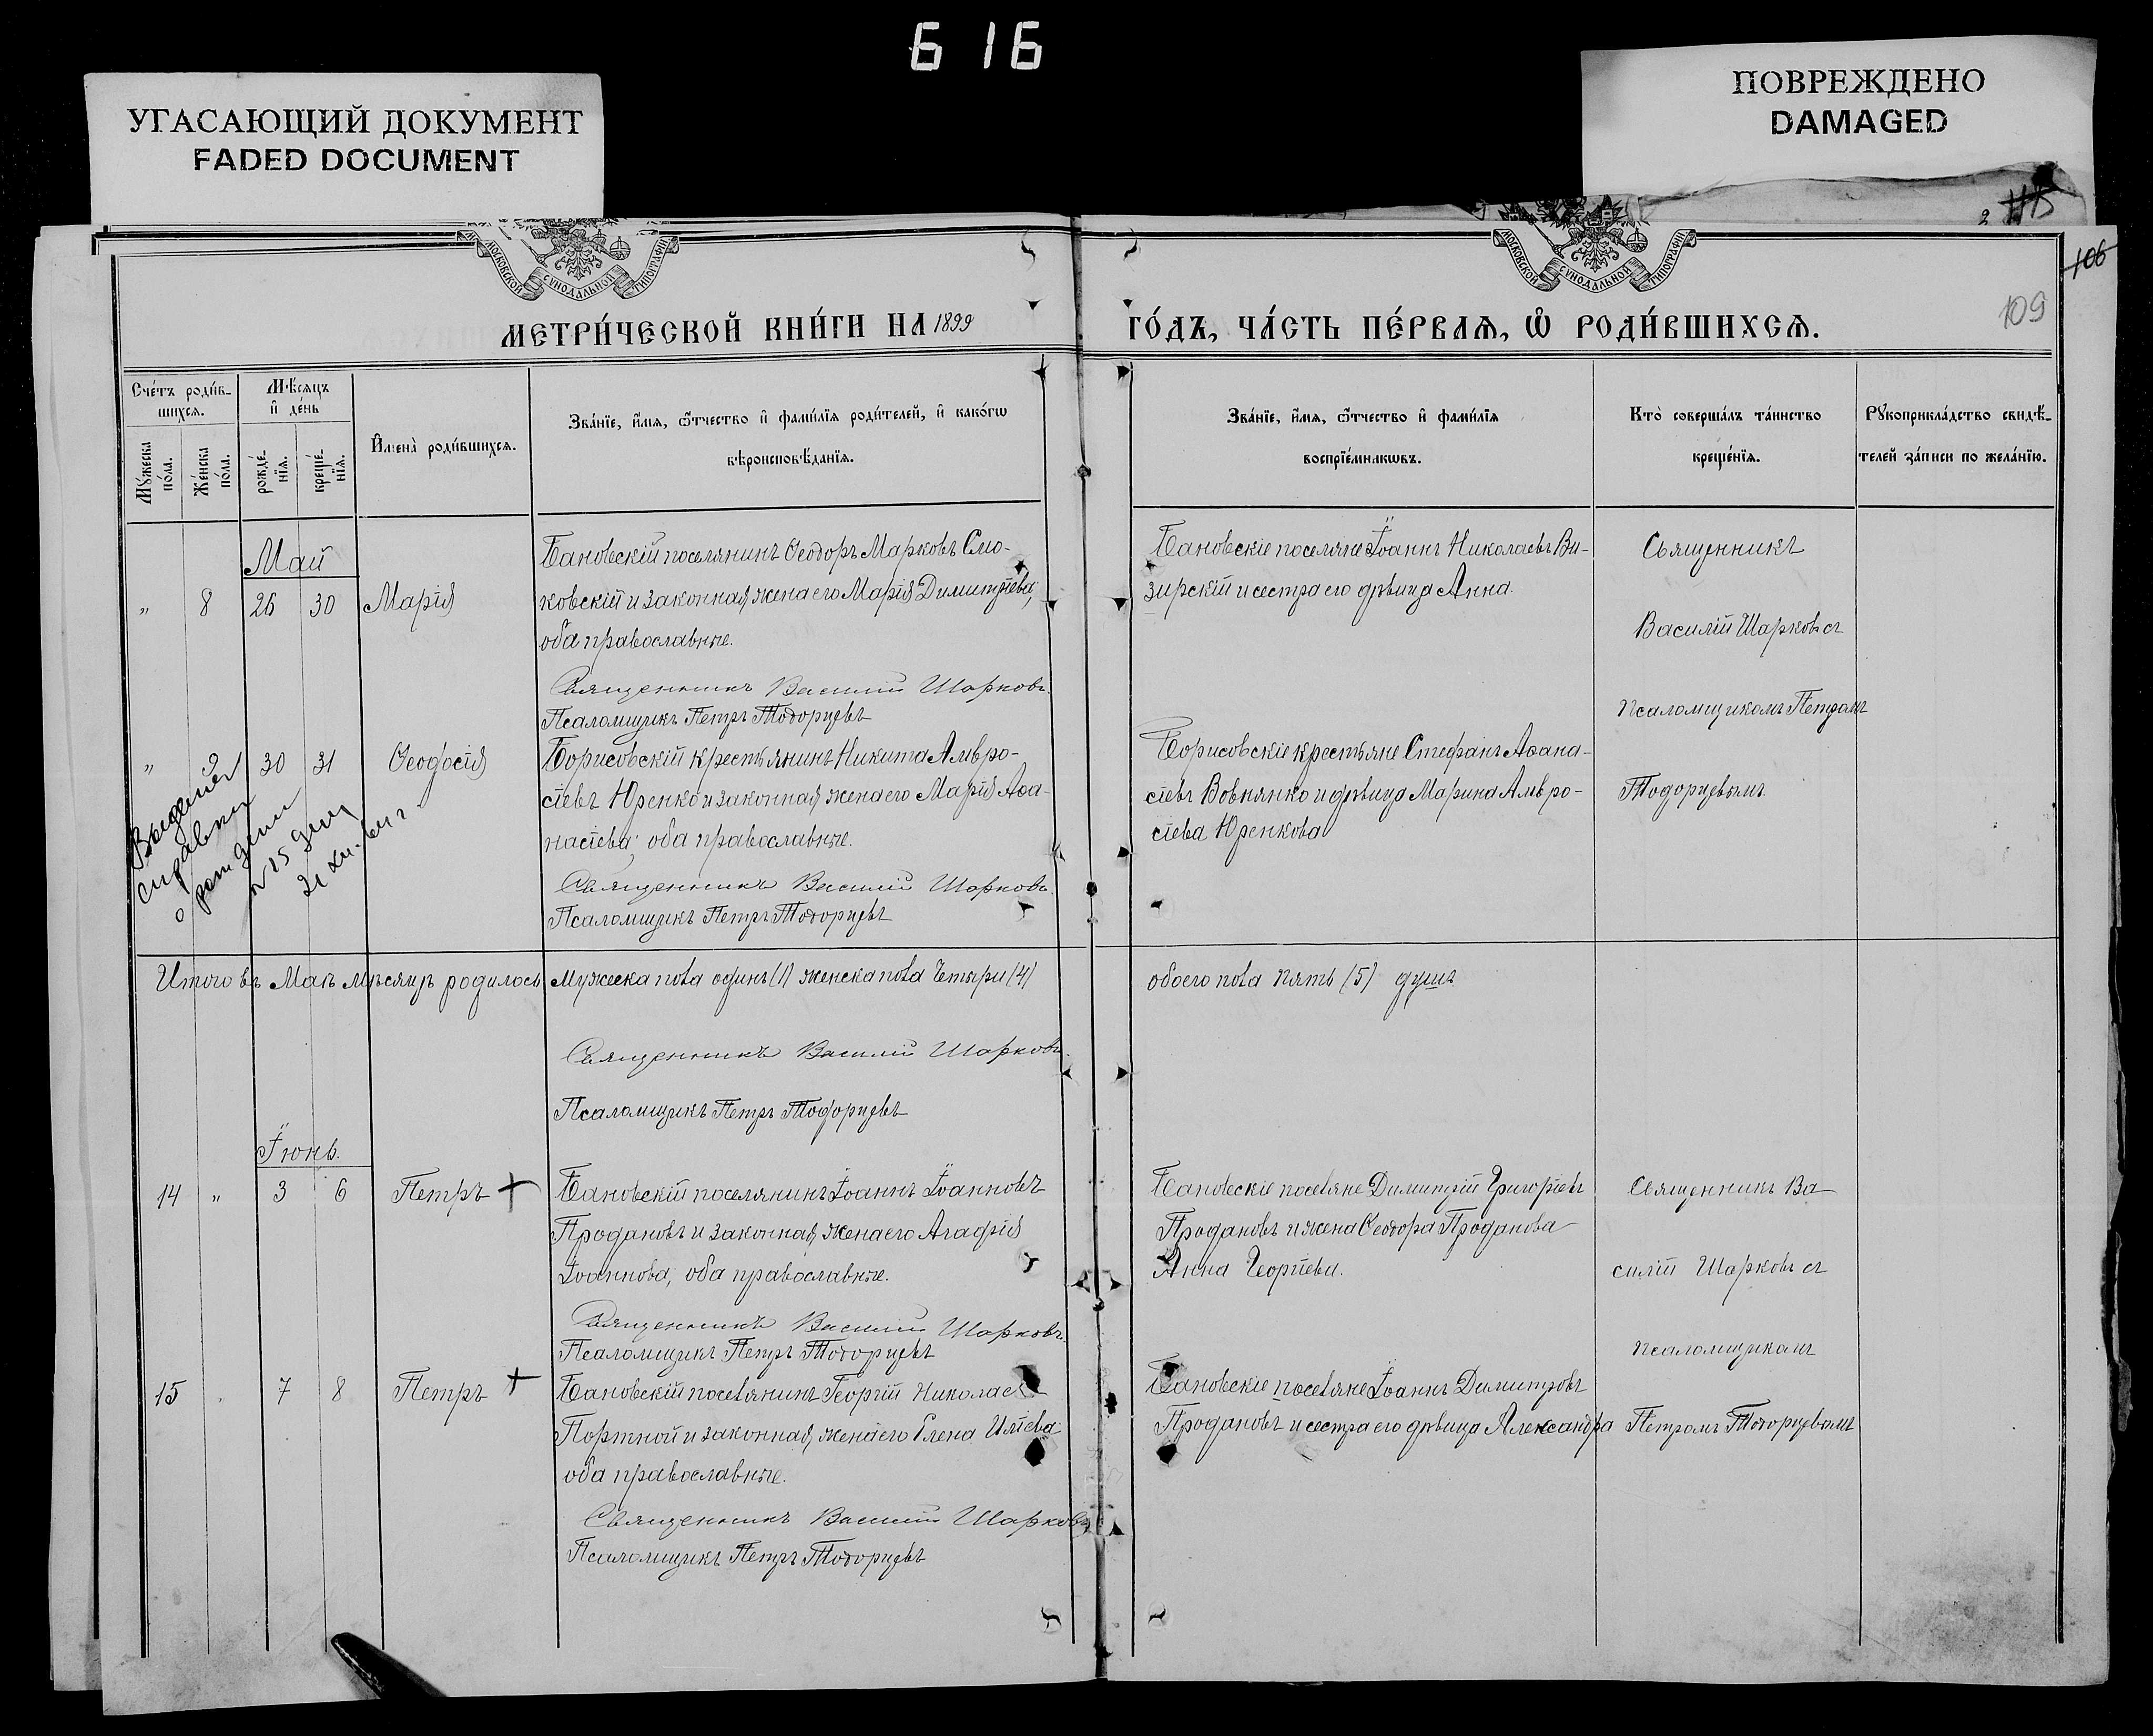 616
УГАСАЮЩИЙ ДОКУМЕНТ
FADED DOCUMENT
ПОВРЕЖДЕНО
DAMAGED
106
109
МОСКОВСКОЙ СѴНОДАЛЬНОЙ ТИПОГРАФІИ
МОСКОВСКОЙ СѴНОДАЛЬНОЙ ТИПОГРАФІИ
МЕТРИ́ЧЕСКОЙ КНИ́ГИ НА 1899
ГО́ДЪ, ЧА́СТЬ ПЕ́РВАѦ, Ѡ҆ РОДИ́ВШИХСѦ.
Сче́тъ роди́в-
шихсѧ.
Мꙋ́жеска
по́ла.
Же́нска
по́ла.
Мѣ́сѧцъ
и҆ де́нь
рожде́-
нїѧ.
креще́-
нїѧ.
И҆мена̀ роди́вшихсѧ.
Зва́нїе, и҆́мѧ, ѻ҆́тчество и҆ фами́лїѧ роди́телей, и҆ како́гѡ
вѣроисповѣ́данїѧ.
Зва́нїе, и҆́мѧ, ѻ҆́тчество и҆ фами́лїѧ
воспрїе́мникѡвъ.
Кто̀ соверша́лъ та́инство
креще́нїѧ.
Рꙋкоприкла́дство свидѣ́-
телей за́писи по жела́нїю.
Май
„ 8 26 30 Марія
Бановскій поселянинъ Ѳеодоръ Марковъ Смо-
ковскій и законная жена его Марія Димитріева,
оба православные.
Священникъ Василій Шарковъ.
Псаломщикъ Петръ Тодорцевъ
Бановскіе поселяне Іоаннъ Николаевъ Ви-
зирскій и сестра его дѣвица Анна.
Священникъ
Василій Шарковъ съ
псаломщикомъ Петромъ
Тодорцевымъ.
„ 9 30 31 Ѳеодосія
Борисовскій крестьянинъ Никита Амвро-
сіевъ Юренко и законная жена его Марія Аѳа-
насіева; оба православные.
Священникъ Василій Шарковъ.
Псаломщикъ Петръ Тодорцевъ
Борисовскіе крестьяне Стефанъ Аѳана-
сіевъ Вовнянко и дѣвица Марина Амвро-
сіева Юренкова
справки
о рождении
Итого въ Маѣ мѣсяцѣ родилось мужеска пола одинъ (1) женска пола четыри (4)
обоего пола пять (5) душъ
Священникъ Василій Шарковъ.
Псаломщикъ Петръ Тодорцевъ
Іюнь.
14 „ 3 6 Петръ +
Бановскій поселянинъ Іоаннъ Іоанновъ
Продановъ и законная жена его Агафія
Іоаннова, оба православные.
Священникъ Василій Шарковъ.
Псаломщикъ Петръ Тодорцевъ
Бановскіе поселяне Димитрій Григоріевъ
Продановъ и жена Ѳеодора Проданова
Анна Георгіева.
Священникъ Ва-
силій Шарковъ съ
псаломщикомъ
Петромъ Тодорцевымъ
15 „ 7 8 Петръ +
Бановскій поселянинъ Георгій Николаевъ
Портной и законная жена его Елена Иліева
оба православные.
Священникъ Василій Шарковъ.
Псаломщикъ Петръ Тодорцевъ
Бановскіе поселяне Іоаннъ Димитровъ
Продановъ и сестра его дѣвица Александра